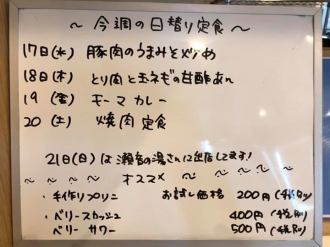 ～ 今週の日替り定食 ～
17日(水) 豚肉のうまみそ炒め
18日(木) とり肉と玉ネギの甘酢あん
19 (金) キーマカレー
20 (土) 焼肉定食
21日(日)は 瀬音の湯さんに出店してます!
～ ～ ～ ～ オススメ ～ ～ ～ ～
・手作りプリン お試し価格 200円(税別)
・ベリースカッシュ 400円(税別)
ベリーサワー 500円(税別)